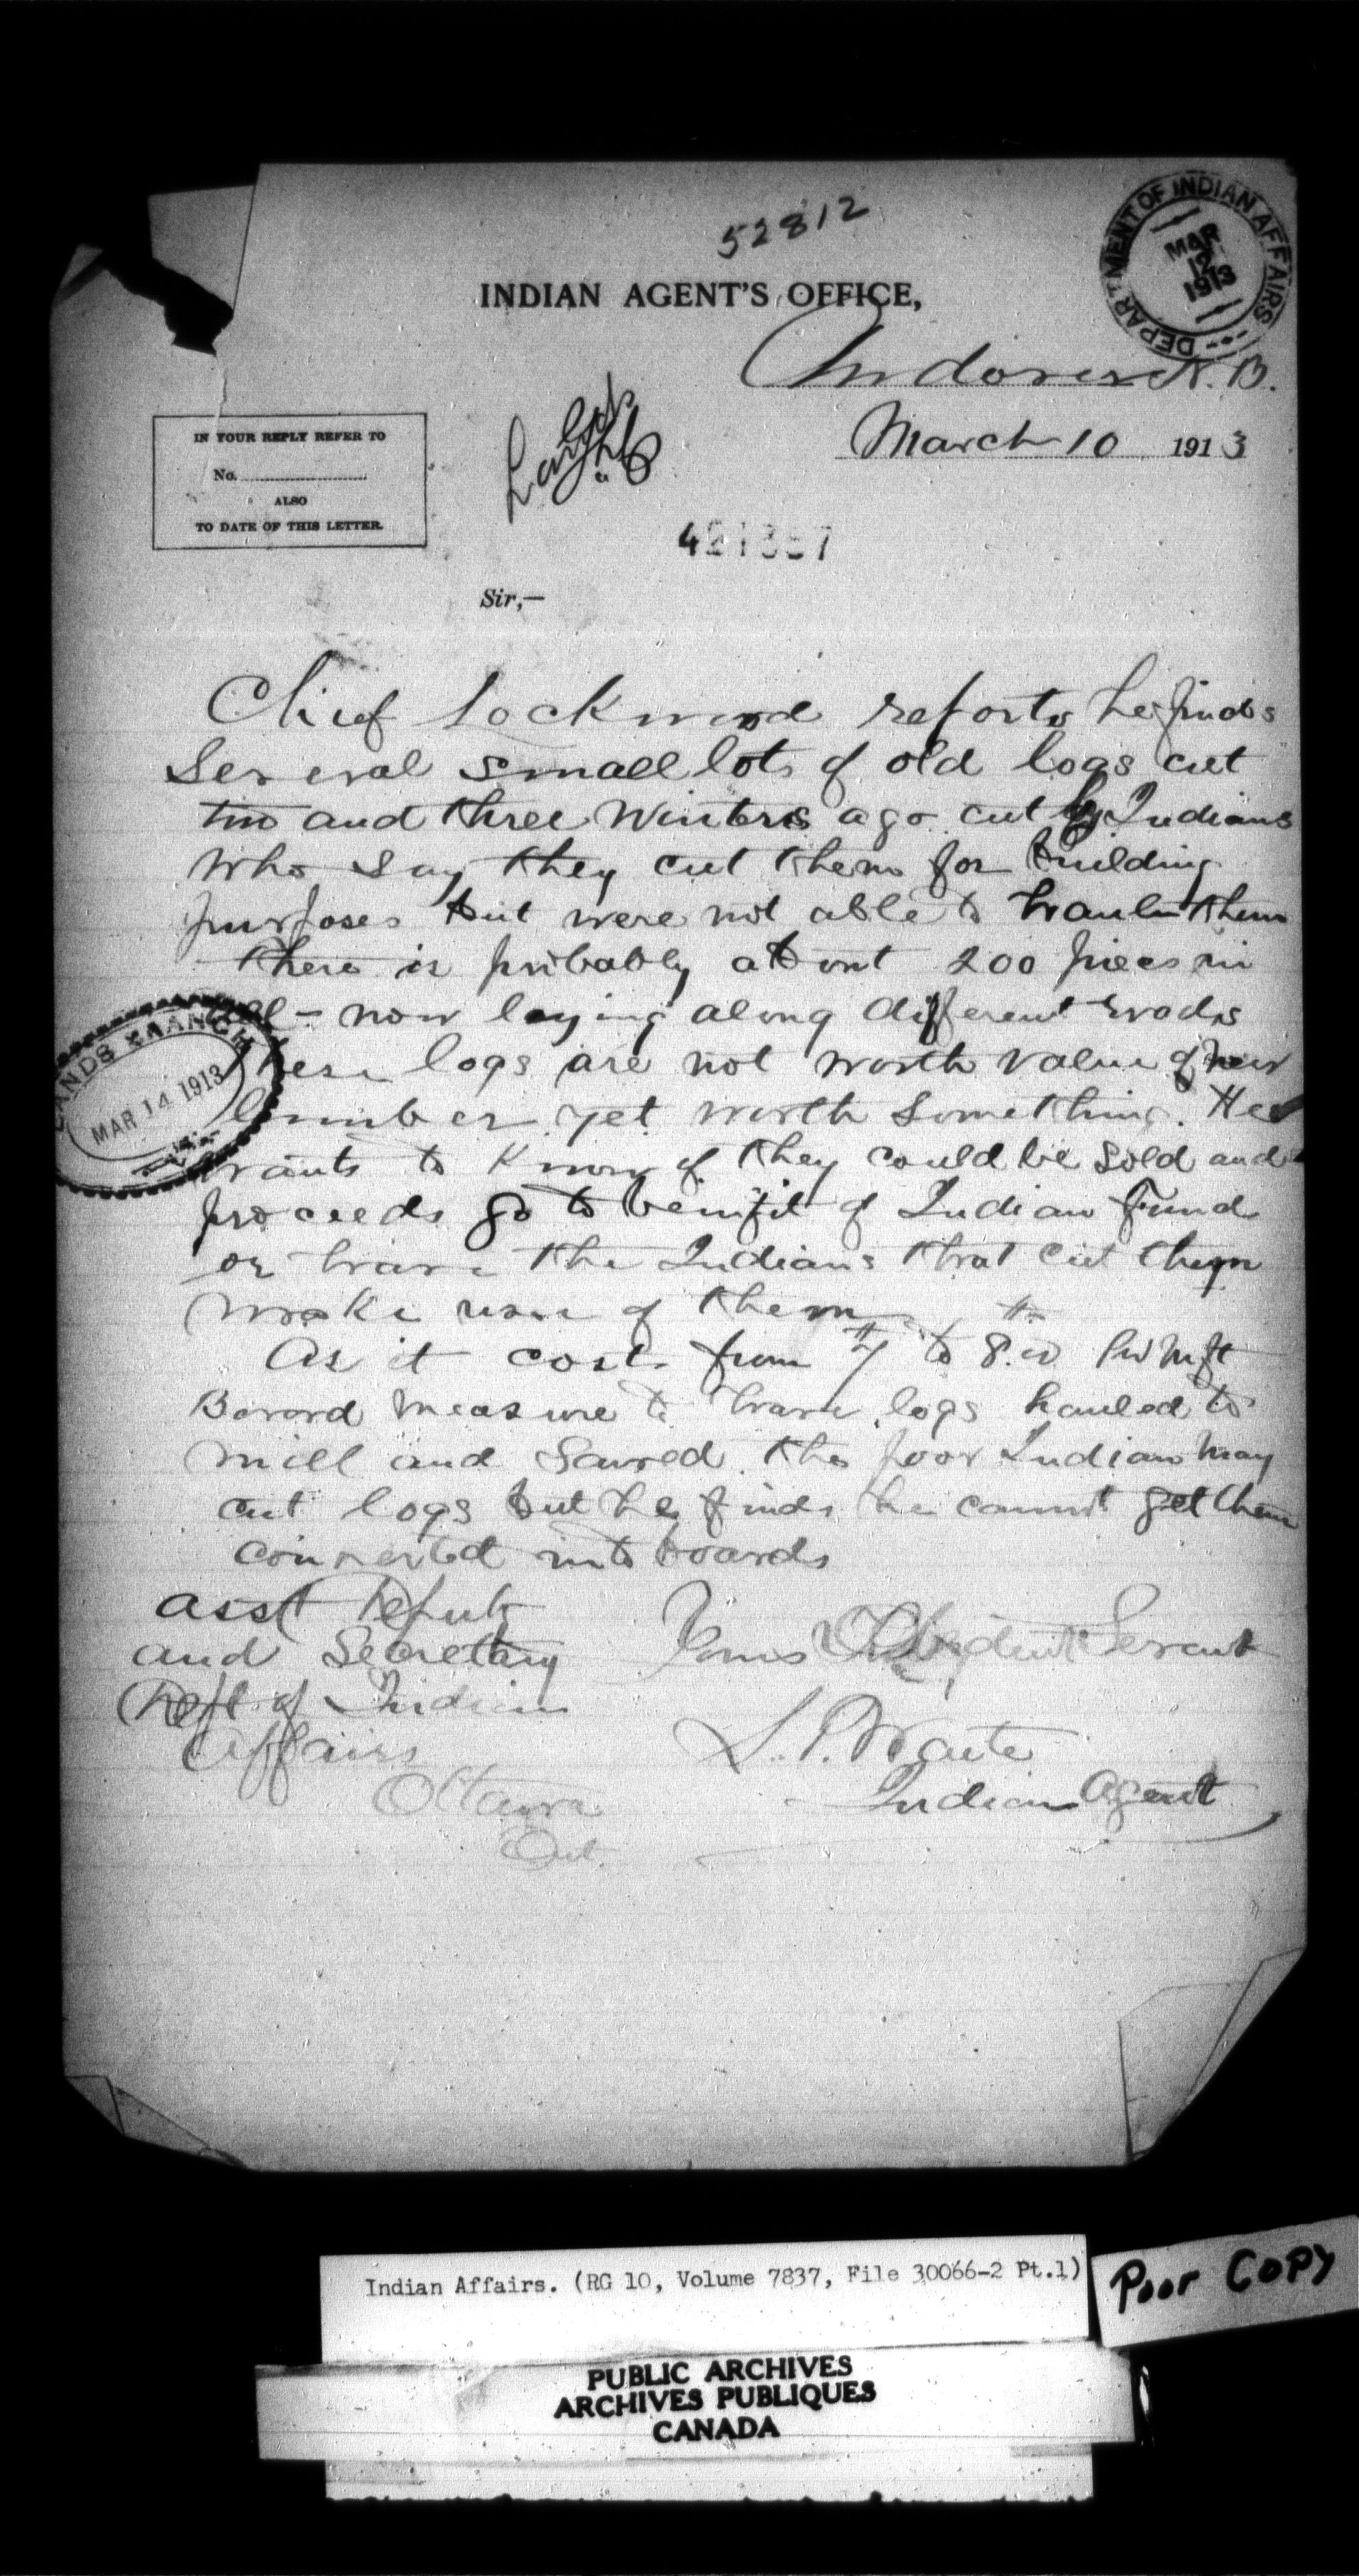 52812
DEPARTMENT OF INDIAN AFFAIRS
MAR
12
1913
INDIAN AGENT'S OFFICE,
Andover N. B.
March 10 1913
IN YOUR REPLY REFER TO
No.
ALSO
TO DATE OF THIS LETTER.
Sir,—
Chief Lockwood reports he finds
Several small lots of old logs cut
two and three Winters ago cut by Indians
Who say they cut them for building
purposes but were not able to haul them
there is probably about 200 pieces in
all - now laying along different roads
these logs are not worth value of new
lumber yet worth something. He
wants to Know if they could be sold and
proceeds go to benifit of Indian Fund
or have the Indians that cut them
make use of them
As it cost from $7 to $8.00 per M ft
Board measure to have logs hauled to
mill and Sawed the poor Indian may
cut logs but he finds he cannot get them
converted into boards
LANDS BRANCH
MAR 14 1913
Asst Deputy
and Secretary
Dept of Indian
Affairs
Ottawa
Ont.
Yours Obedient Servant
Indian Agent
Indian Affairs. (RG 10, Volume 7837, File 30066-2 Pt.1)
Poor Copy
PUBLIC ARCHIVES
ARCHIVES PUBLIQUES
CANADA